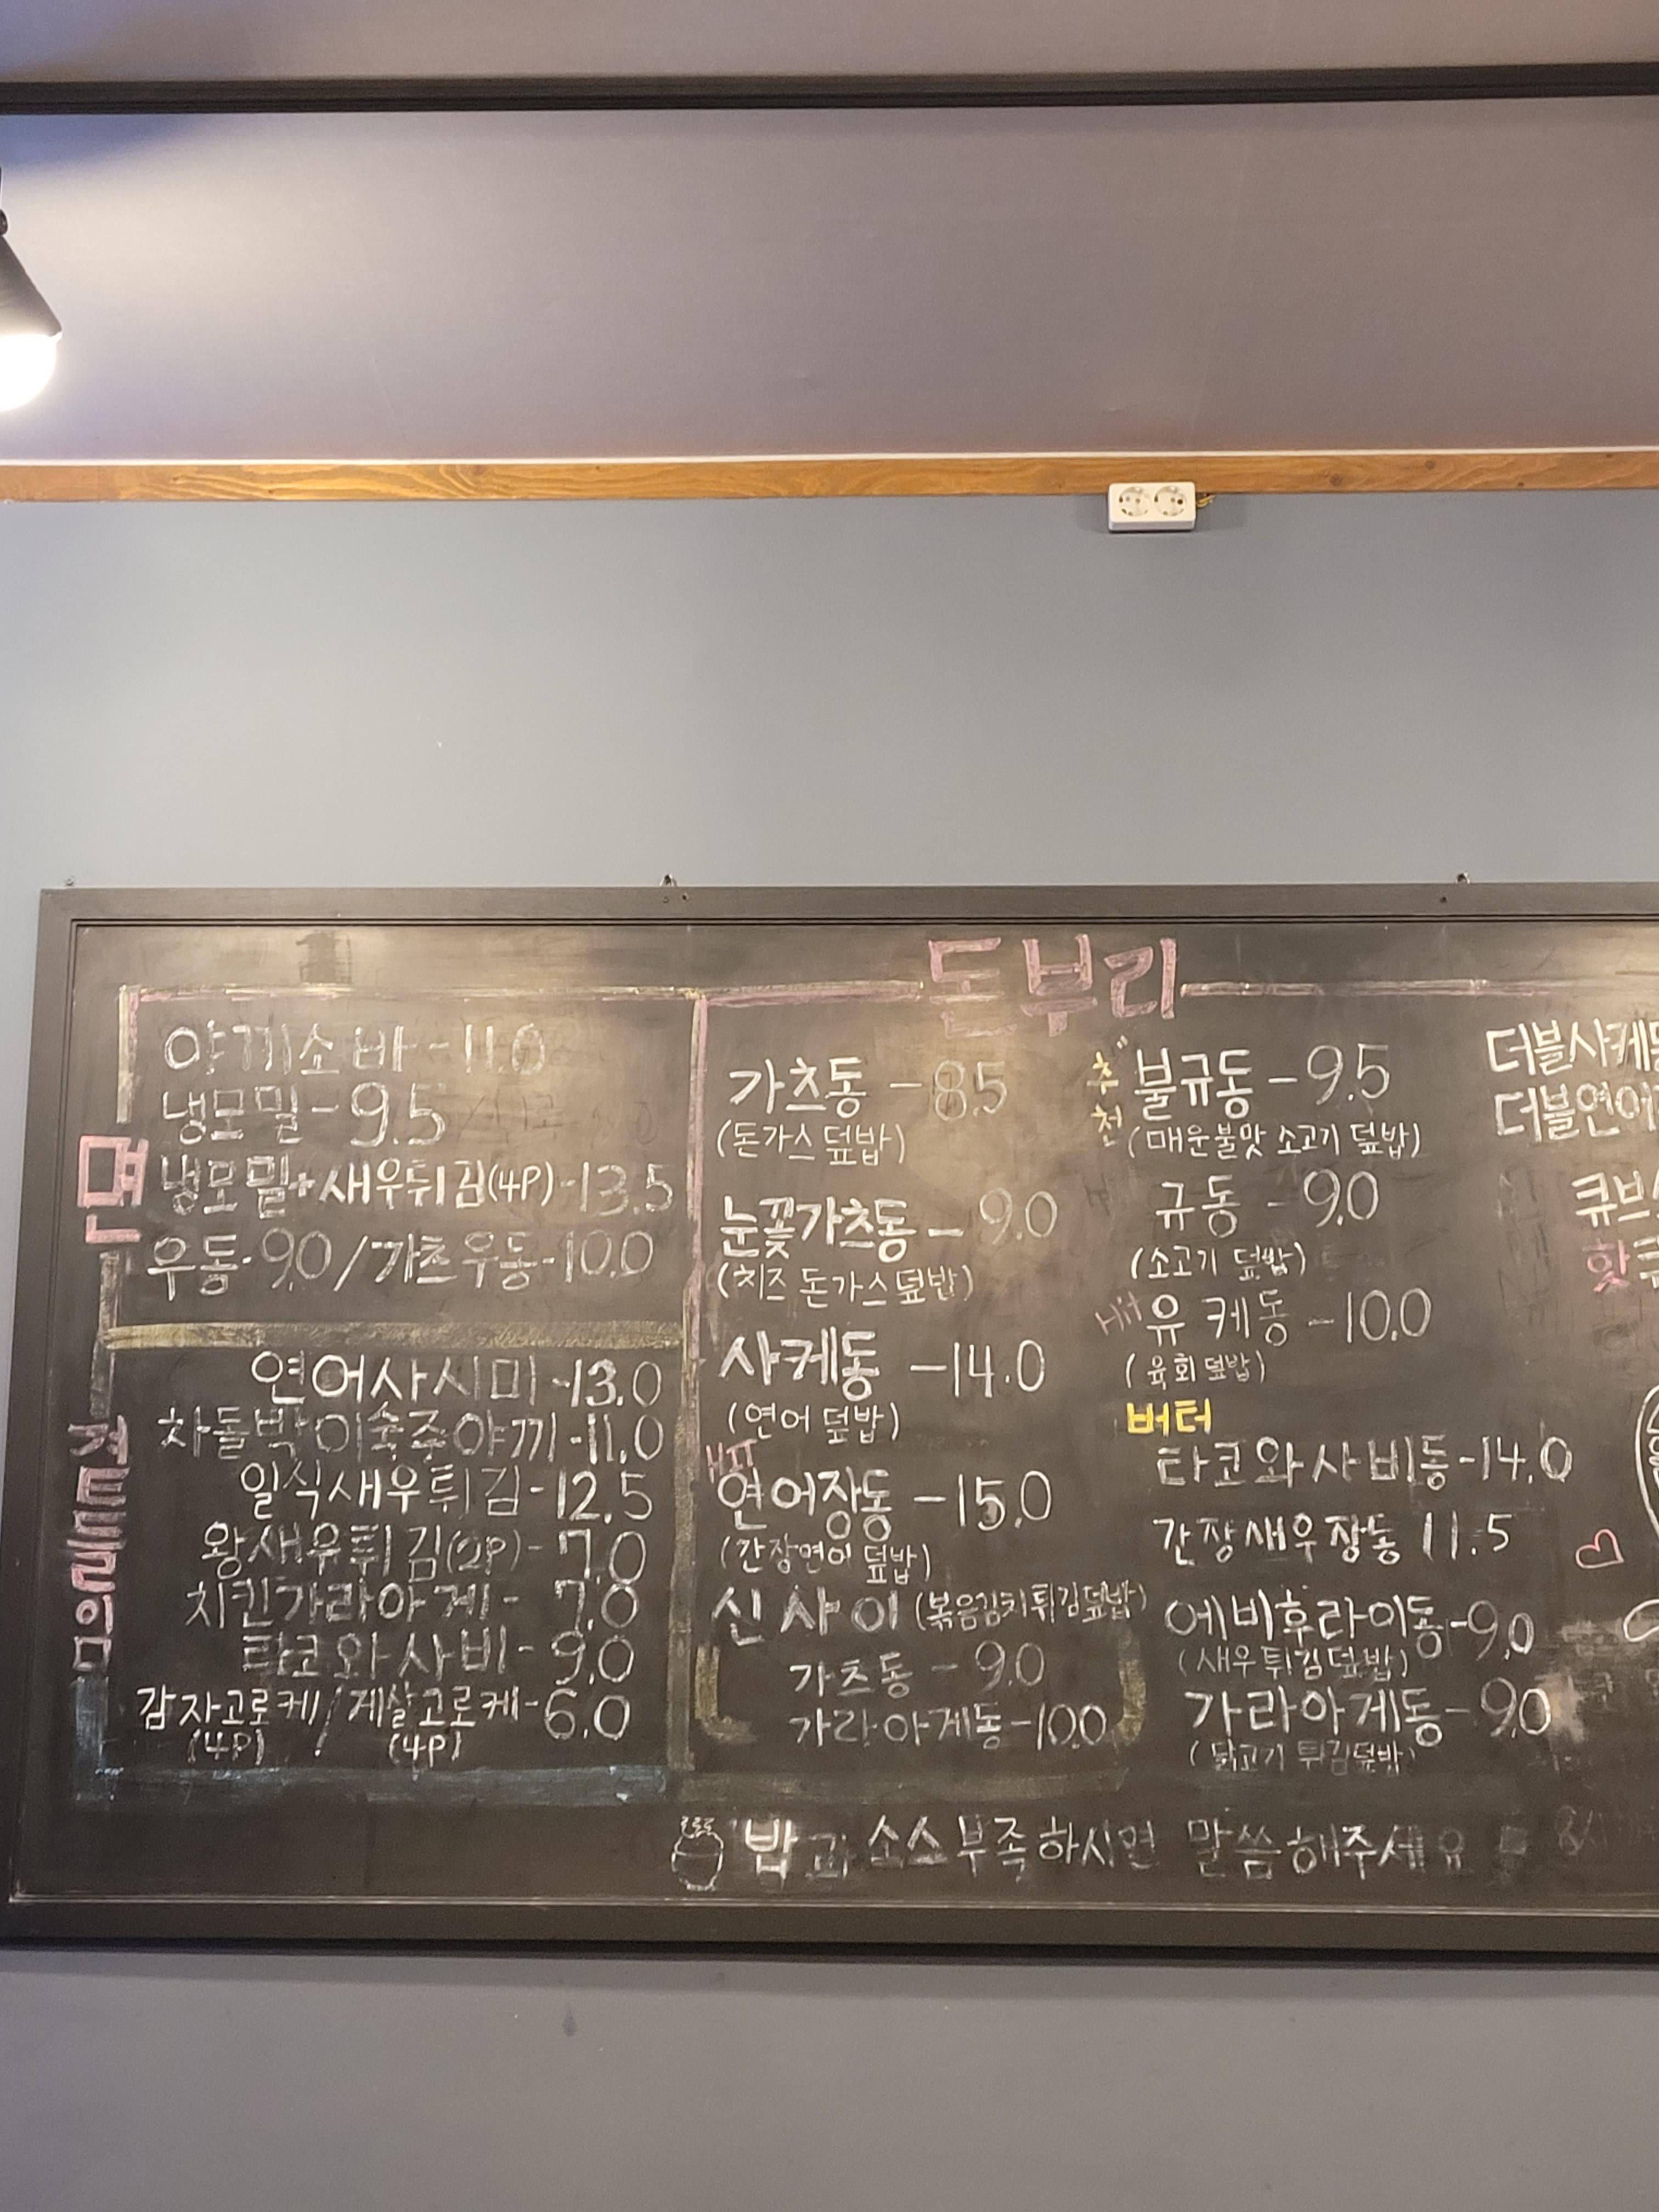 돈부리
면
야끼소바-11.0
냉모밀-9.5
냉모밀+새우튀김(4P)-13.5
우동-9.0/가츠우동-10.0
곁들임
연어사시미-13.0
차돌박이숙주야끼-11.0
일식새우튀김-12.5
왕새우튀김(2P)-7.0
치킨가라아게-7.0
타코와사비-9.0
감자고로케/게살고로케-6.0
(4P) (4P)
가츠동-8.5
(돈가스덮밥)
눈꽃가츠동-9.0
(치즈돈가스덮밥)
사케동-14.0
(연어덮밥)
연어장동-15.0
(간장연어덮밥)
신사이(볶음김치튀김덮밥)
가츠동-9.0
가라아게동-10.0
추천
불규동-9.5
(매운불맛 소고기 덮밥)
규동-9.0
(소고기 덮밥)
Hit 유케동-10.0
(육회덮밥)
버터
타코와사비동-14.0
간장새우장동 11.5
에비후라이동-9.0
(새우튀김덮밥)
가라아게동-9.0
(닭고기 튀김덮밥)
더블사케동
더블연어
큐브
핫
밥과 소스부족하시면 말씀해주세요